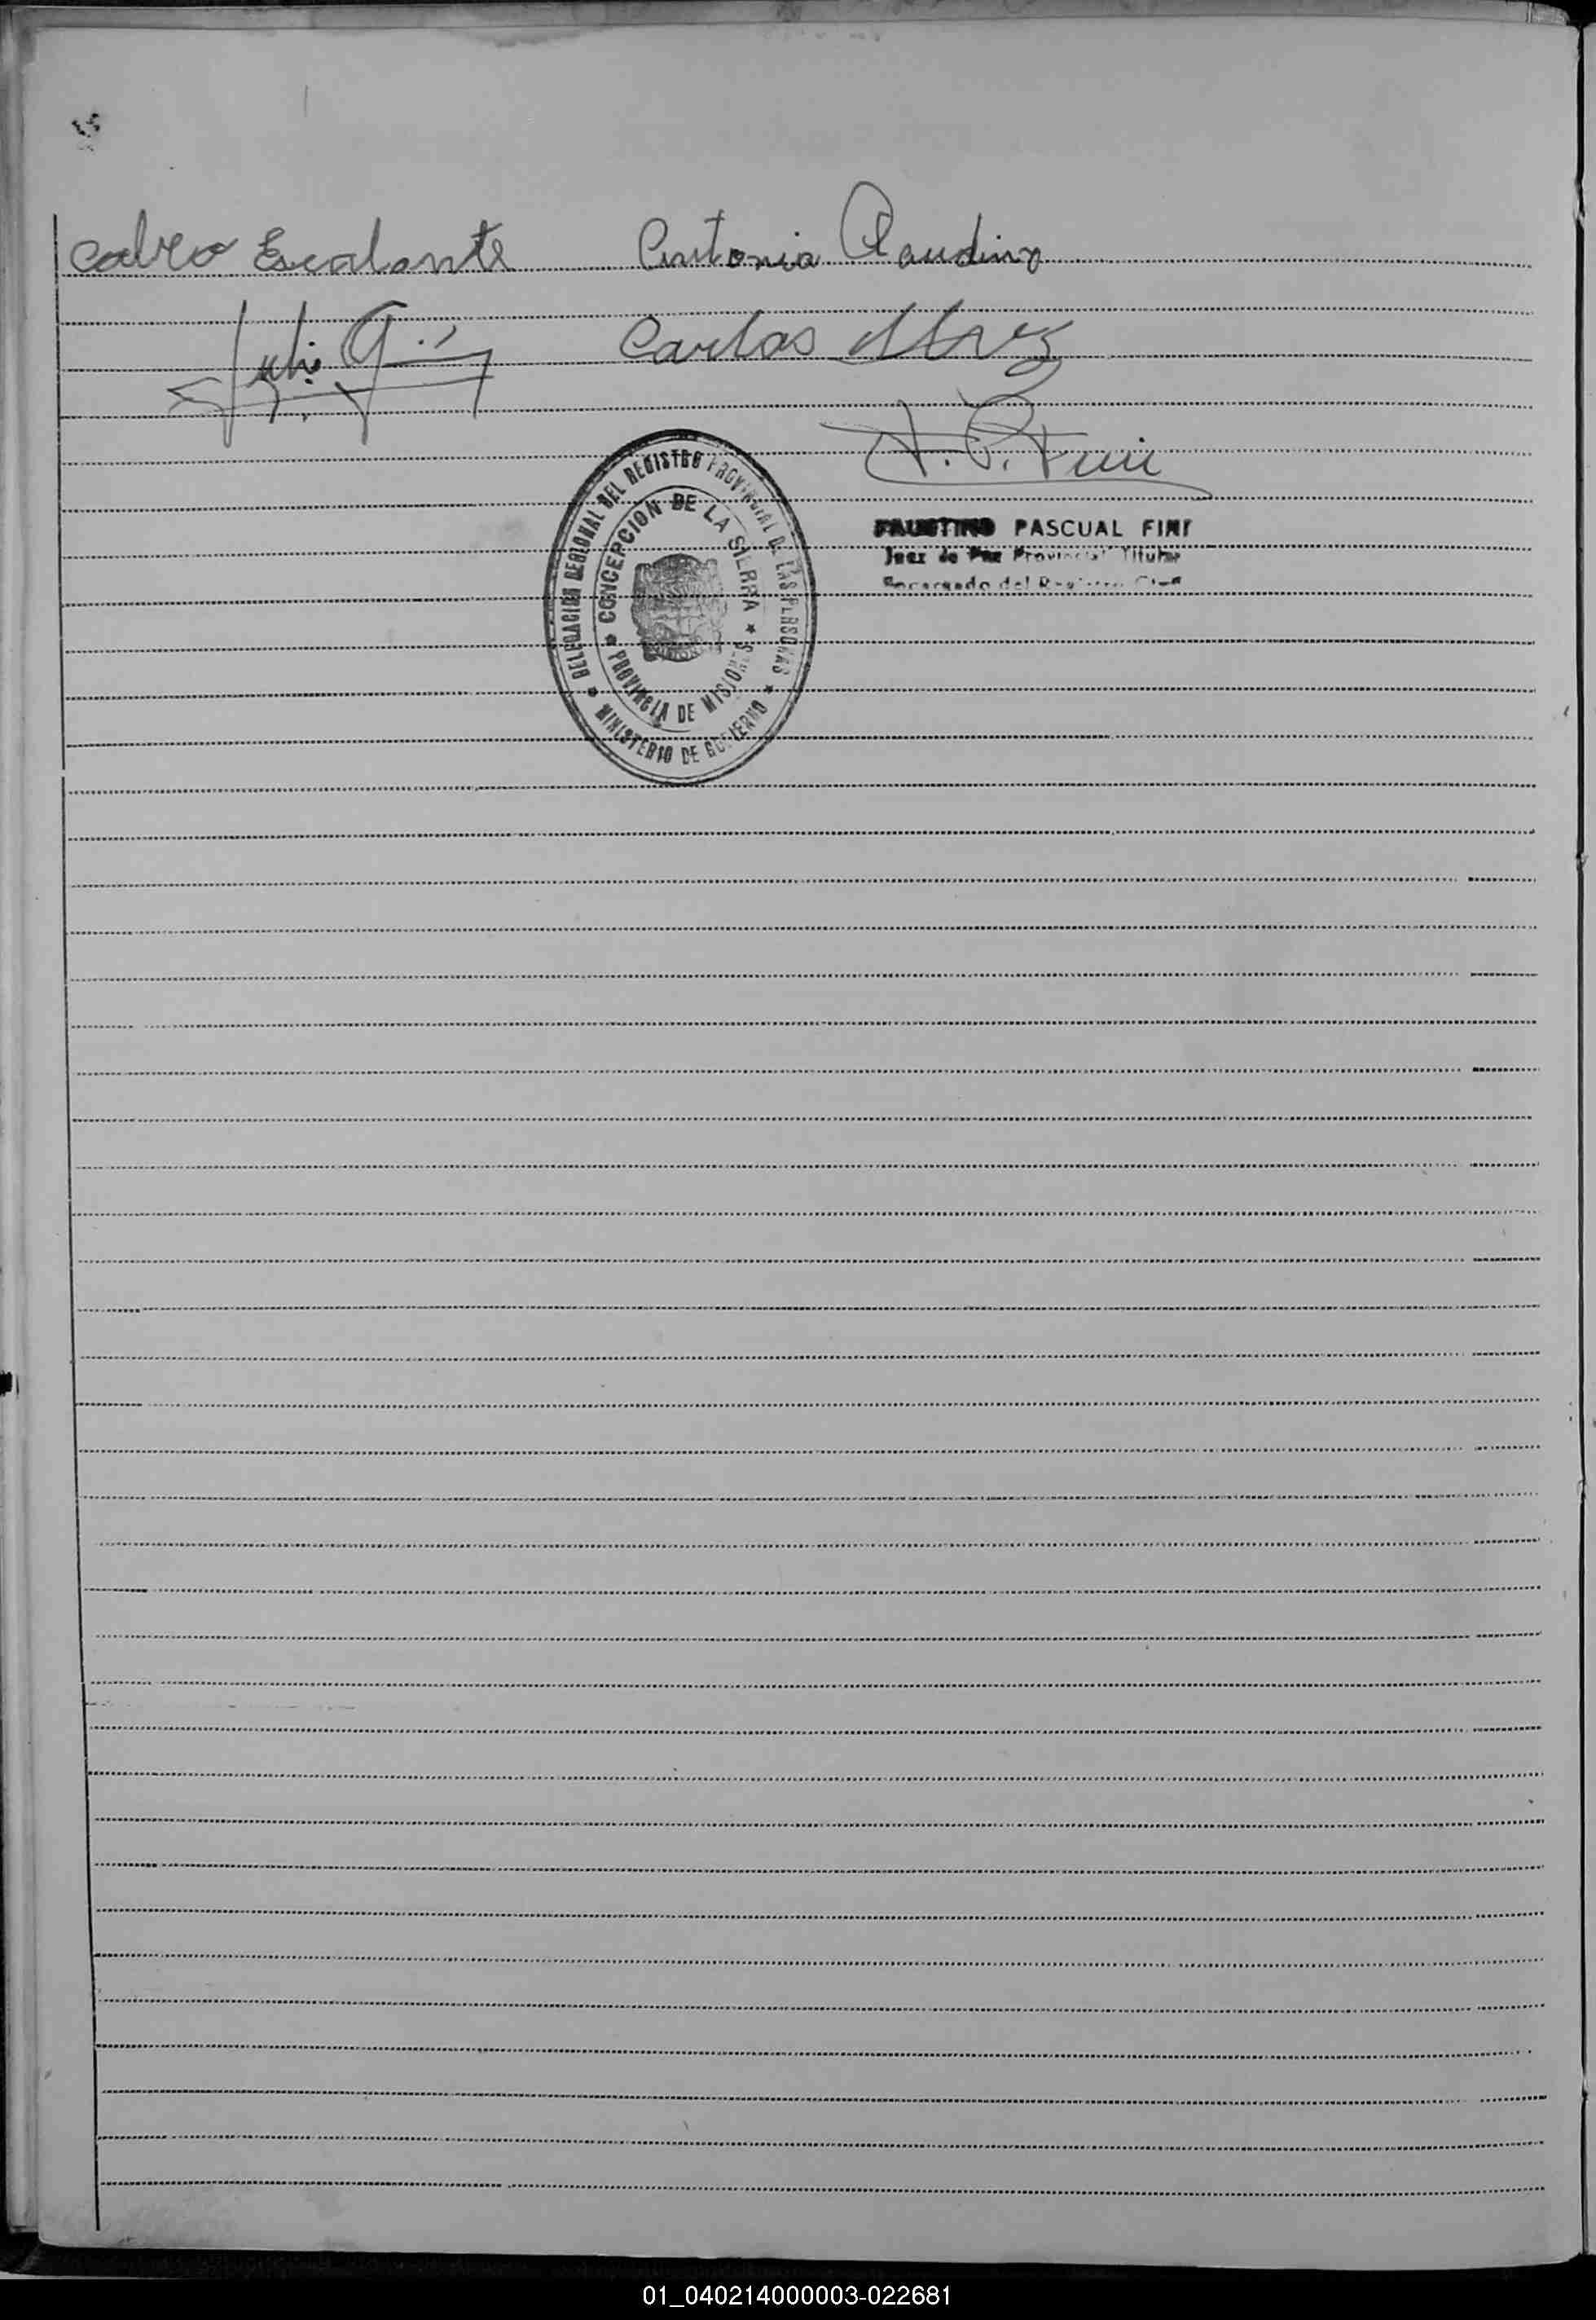 Calvo Escalante Antonia Claudino
Julio G. Carlos
F. P. Fini
DELEGACION REGIONAL DEL REGISTRO PROVINCIAL DE LAS PERSONAS
CONCEPCION DE LA SIERRA
PROVINCIA DE MISIONES
MINISTERIO DE GOBIERNO
FAUSTINO PASCUAL FINI
Juez de Paz Provincial Titular
Encargado del Registro Civil
01_040214000003-022681